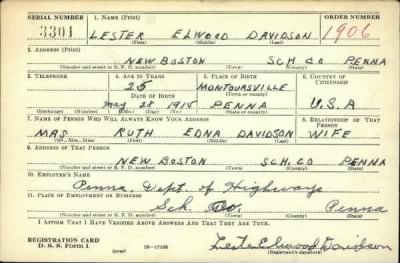 SERIAL NUMBER 1. NAME (Print) ORDER NUMBER
3301 LESTER ELWOOD DAVIDSON 1906
(First) (Middle) (Last)
2. ADDRESS (Print)
NEW BOSTON SCH CO PENNA
(Number and street or R. F. D. number) (Town) (County) (State)
3. TELEPHONE 4. AGE IN YEARS 5. PLACE OF BIRTH 6. COUNTRY OF CITIZENSHIP
25 MONTOURSVILLE
DATE OF BIRTH (Town or county)
May 28 1915 PENNA U.S.A
(Exchange) (Number) (Mo.) (Day) (Yr.) (State or country)
7. NAME OF PERSON WHO WILL ALWAYS KNOW YOUR ADDRESS 8. RELATIONSHIP OF THAT PERSON
MRS RUTH EDNA DAVIDSON WIFE
(Mr., Mrs., Miss) (First) (Middle) (Last)
9. ADDRESS OF THAT PERSON
NEW BOSTON SCH. CO PENNA
(Number and street or R. F. D. number) (Town) (County) (State)
10. EMPLOYER'S NAME
Penna. Dept. of Highways
11. PLACE OF EMPLOYMENT OR BUSINESS
Sch. Co. Penna
(Number and street or R. F. D. number) (Town) (County) (State)
I AFFIRM THAT I HAVE VERIFIED ABOVE ANSWERS AND THAT THEY ARE TRUE.
REGISTRATION CARD
D. S. S. Form 1 (over) Lester Elwood Davidson
(Registrant's signature)